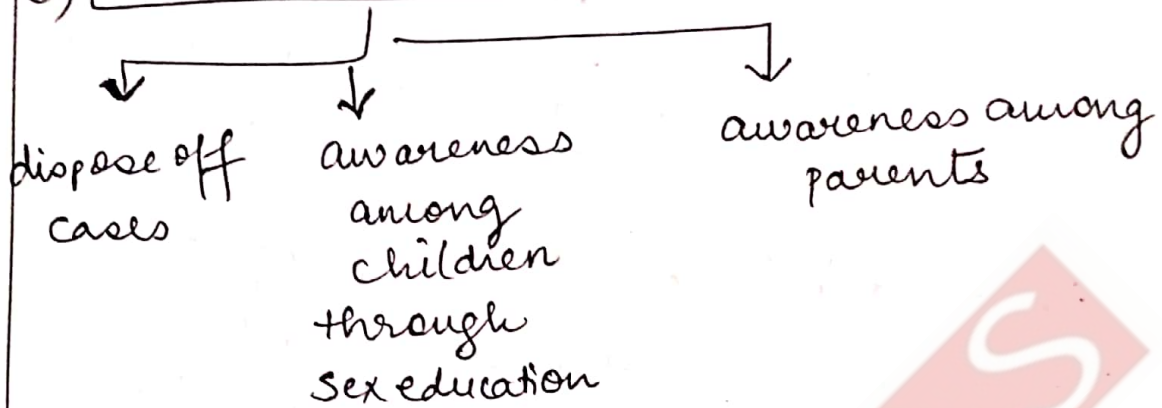 dispose off
cases
awareness
among
children
through
sex education
awareness among
parents